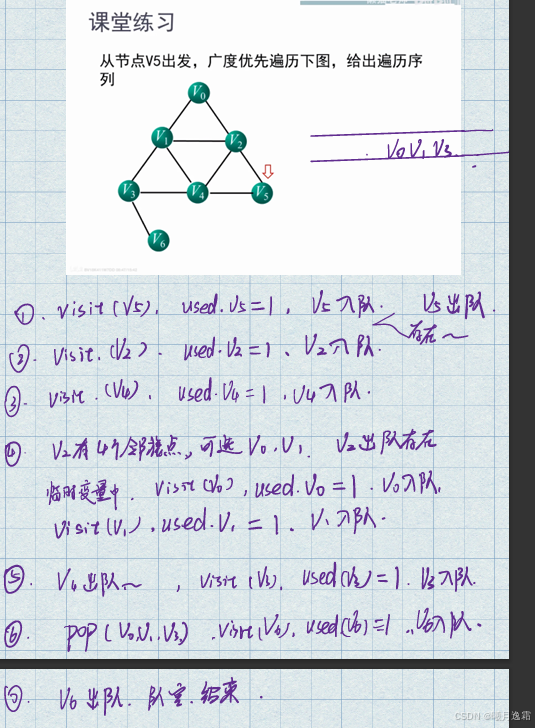 课堂练习
从节点V5出发，广度优先遍历下图，给出遍历序
列
V0
V1 V2
V3 V4 V5
V6
V0 V1 V3
①. visit(V5), used.V5=1, V5入队. V5出队.
存在~
②. visit.(V2). used.V2=1、V2入队.
③. visit.(V4). used.V4=1.V4入队.
④. V2有4个邻接点,可选V0.V1. V2出队存在
临时变量中. visit(V0),used.V0=1.V0入队,
visit(V1).used.V1=1、V1入队.
⑤. V4出队~, visit(V3), used(V3)=1.V3入队.
⑥. pop(V0,V1,V3).visit(V6),used(V6)=1.,V6入队.
V6出队.队空.结束.
CSDN @曈月逸霜